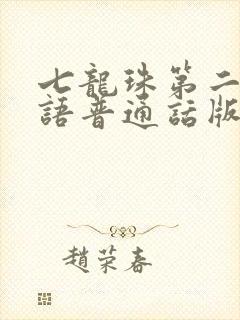 七龍珠第二
語普通話版
趙荣春